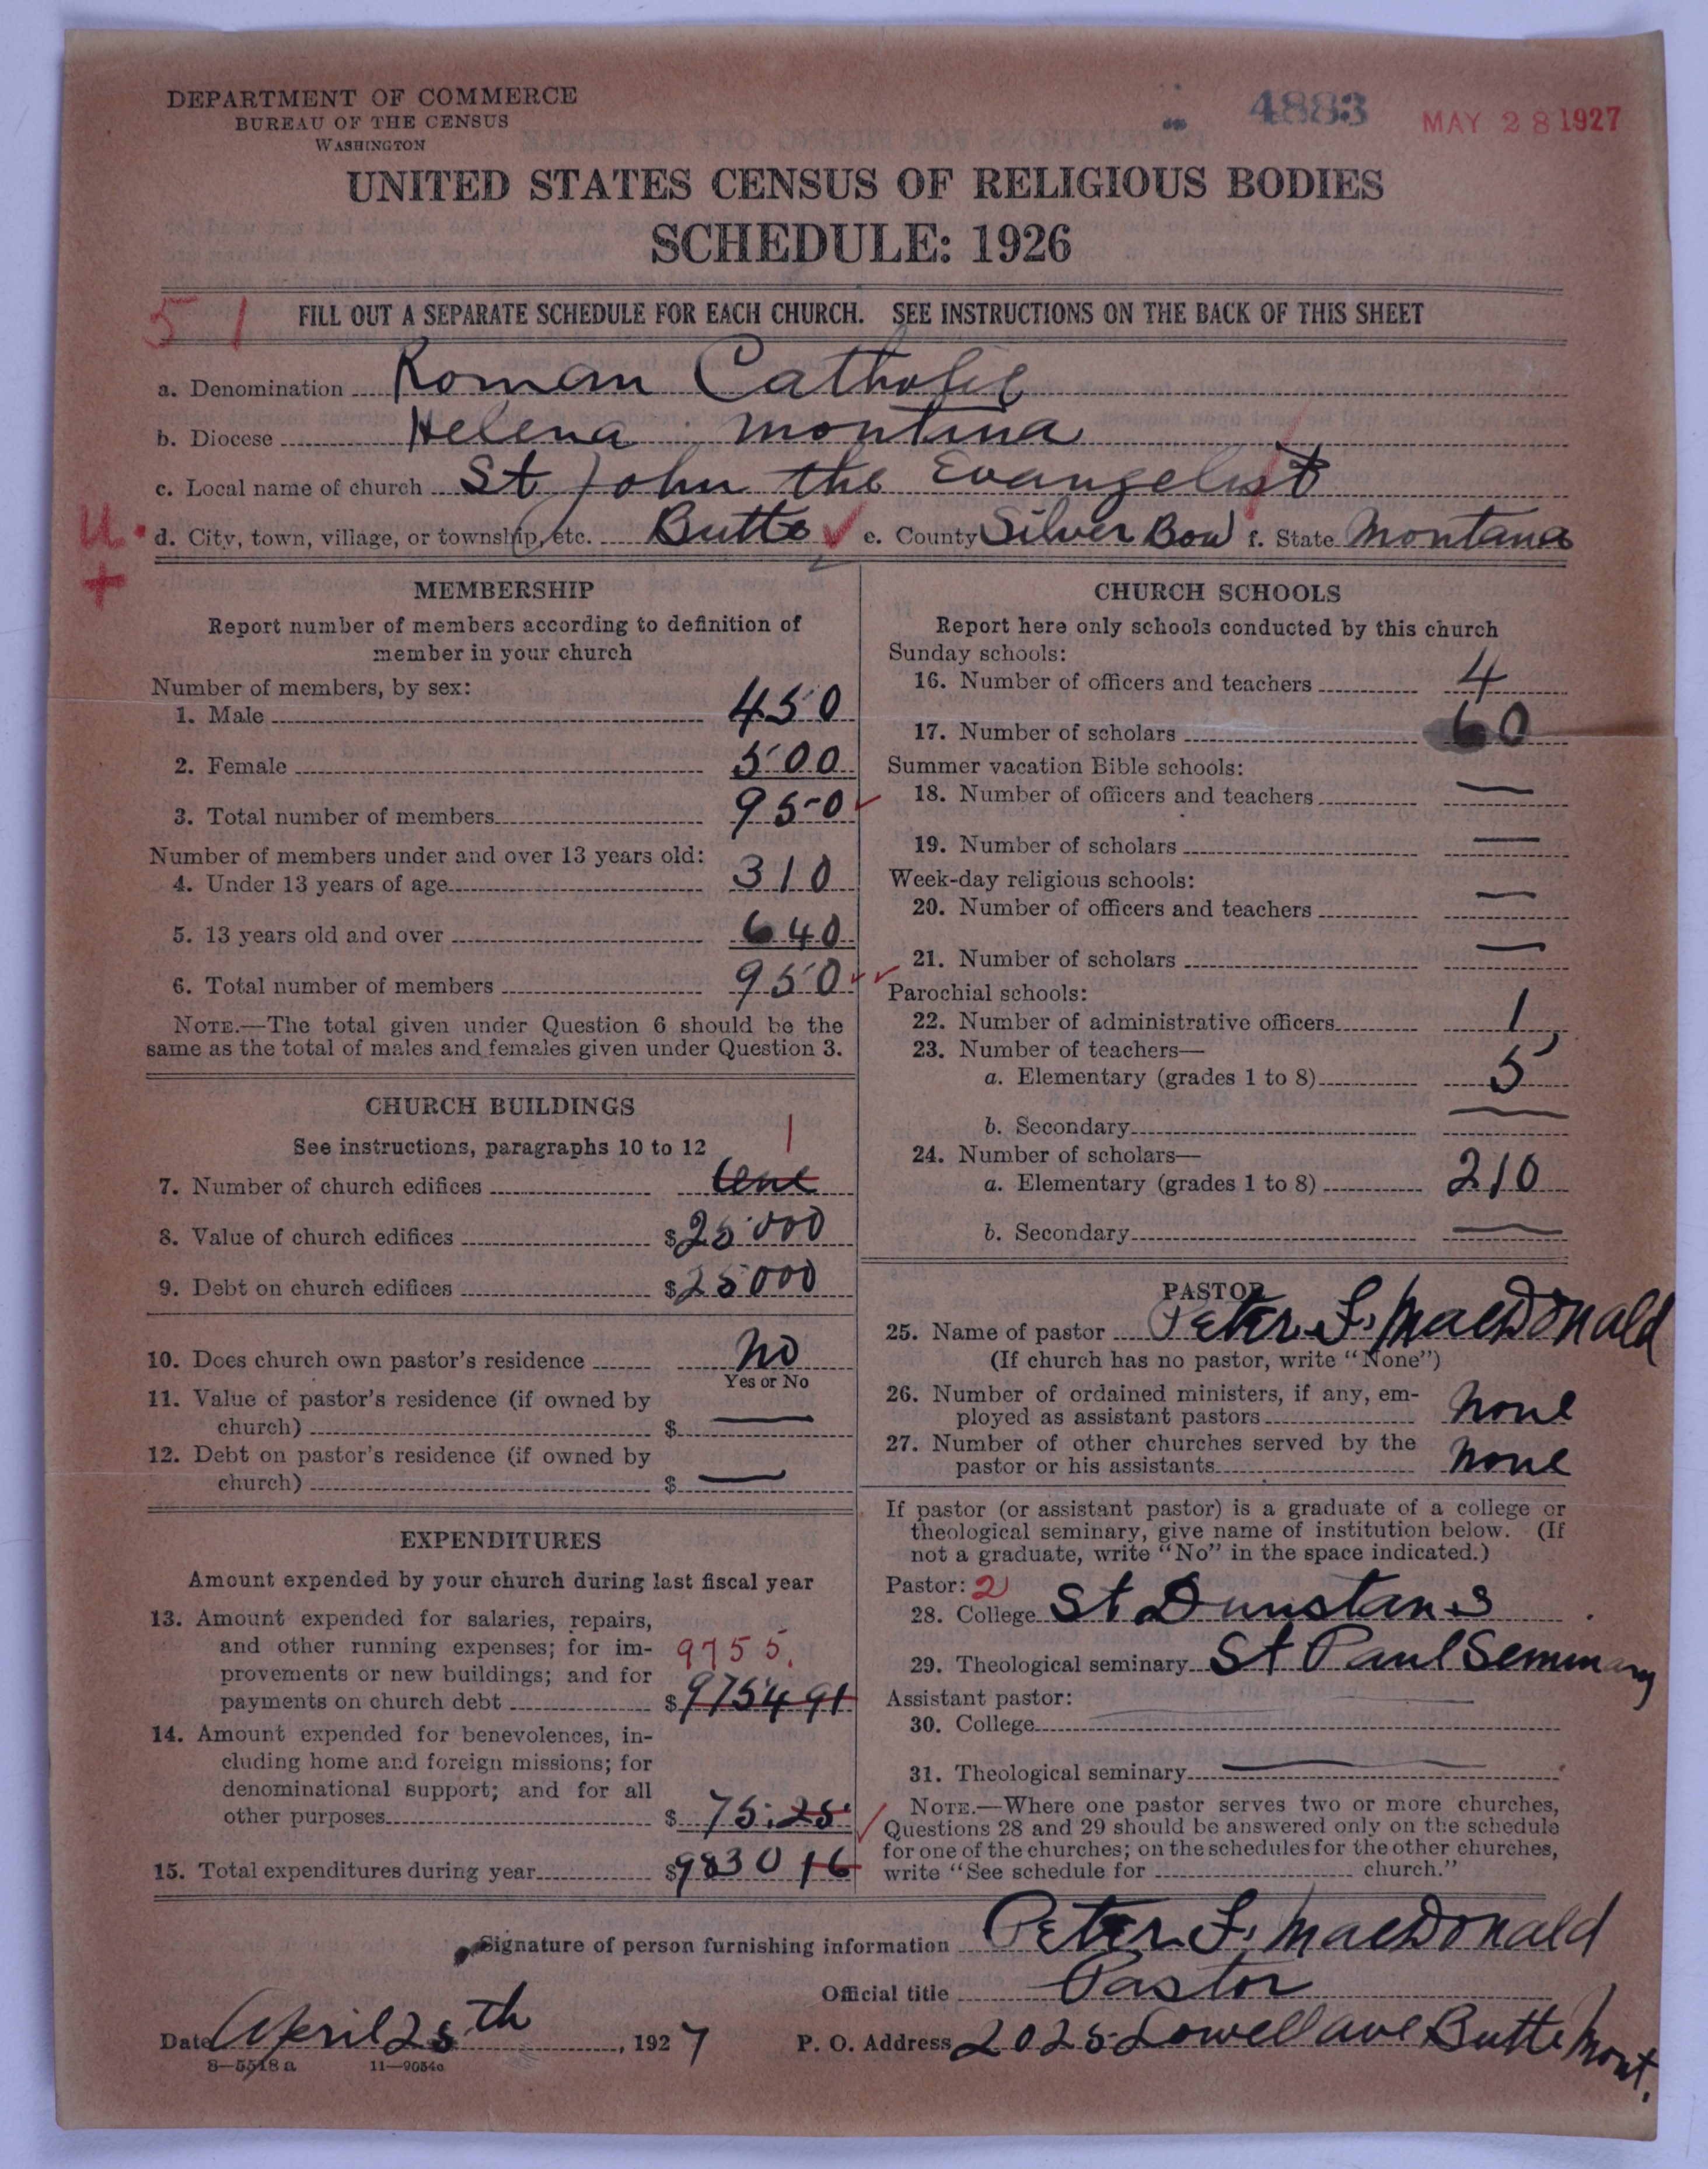 DEPARTMENT OF COMMERCE
BUREAU OF THE CENSUS
WASHINGTON
4883
MAY 28 1927
UNITED STATES CENSUS OF RELIGIOUS BODIES
SCHEDULE: 1926
51
FILL OUT A SEPARATE SCHEDULE FOR EACH CHURCH. SEE INSTRUCTIONS ON THE BACK OF THIS SHEET
a. Denomination Roman Catholic
b. Diocese Helena montina
c. Local name of church St John the Evangelist
U. d. City, town, village, or township, etc. Butte e. County Silver Bow f. State Montana
+
MEMBERSHIP
Report number of members according to definition of
member in your church
Number of members, by sex:
1. Male 450
2. Female 500
3. Total number of members 950
Number of members under and over 13 years old:
4. Under 13 years of age 310
5. 13 years old and over 640
6. Total number of members 950
NOTE.—The total given under Question 6 should be the
same as the total of males and females given under Question 3.
CHURCH BUILDINGS
See instructions, paragraphs 10 to 12
1
7. Number of church edifices
8. Value of church edifices $25000
9. Debt on church edifices $25000
10. Does church own pastor's residence no
Yes or No
11. Value of pastor's residence (if owned by
church) $ —
12. Debt on pastor's residence (if owned by
church) $ —
EXPENDITURES
Amount expended by your church during last fiscal year
13. Amount expended for salaries, repairs,
and other running expenses; for im-
provements or new buildings; and for
9755.
payments on church debt $9754 91
14. Amount expended for benevolences, in-
cluding home and foreign missions; for
denominational support; and for all
other purposes $ 75.25
15. Total expenditures during year $9830 16
CHURCH SCHOOLS
Report here only schools conducted by this church
Sunday schools:
16. Number of officers and teachers 4
17. Number of scholars 60
Summer vacation Bible schools:
18. Number of officers and teachers —
19. Number of scholars —
Week-day religious schools:
20. Number of officers and teachers —
21. Number of scholars —
Parochial schools:
22. Number of administrative officers 1
23. Number of teachers—
a. Elementary (grades 1 to 8) 5
b. Secondary —
24. Number of scholars—
a. Elementary (grades 1 to 8) 210
b. Secondary —
PASTOR
25. Name of pastor Peter F. MacDonald
(If church has no pastor, write "None")
26. Number of ordained ministers, if any, em-
ployed as assistant pastors none
27. Number of other churches served by the
pastor or his assistants none
If pastor (or assistant pastor) is a graduate of a college or
theological seminary, give name of institution below. (If
not a graduate, write "No" in the space indicated.)
Pastor: 2
28. College St Dunstans
29. Theological seminary St Paul Seminary
Assistant pastor: —
30. College
31. Theological seminary —
NOTE.—Where one pastor serves two or more churches,
Questions 28 and 29 should be answered only on the schedule
for one of the churches; on the schedules for the other churches,
write "See schedule for church."
Signature of person furnishing information Peter F. MacDonald
Official title Pastor
Date April 25th, 1927 P. O. Address 2025 Lowell ave Butte Mont.
8—5518 a 11—9054a